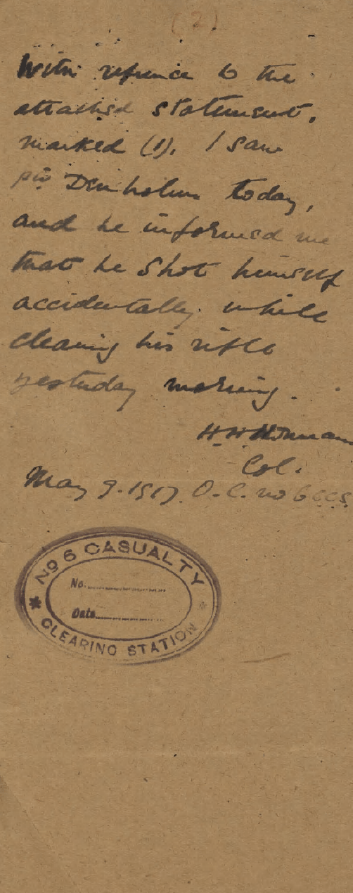 (2)
With refrence to the
attached statement,
marked (1). I saw
pte Denholm today,
and he informed me
that he shot himself
accidentally while
cleaning his rifle
yesterday morning.
Col.
May 9. 1917 O.C. no 6 CCS.
No 6 CASUALTY
No.
Date
CLEARING STATION